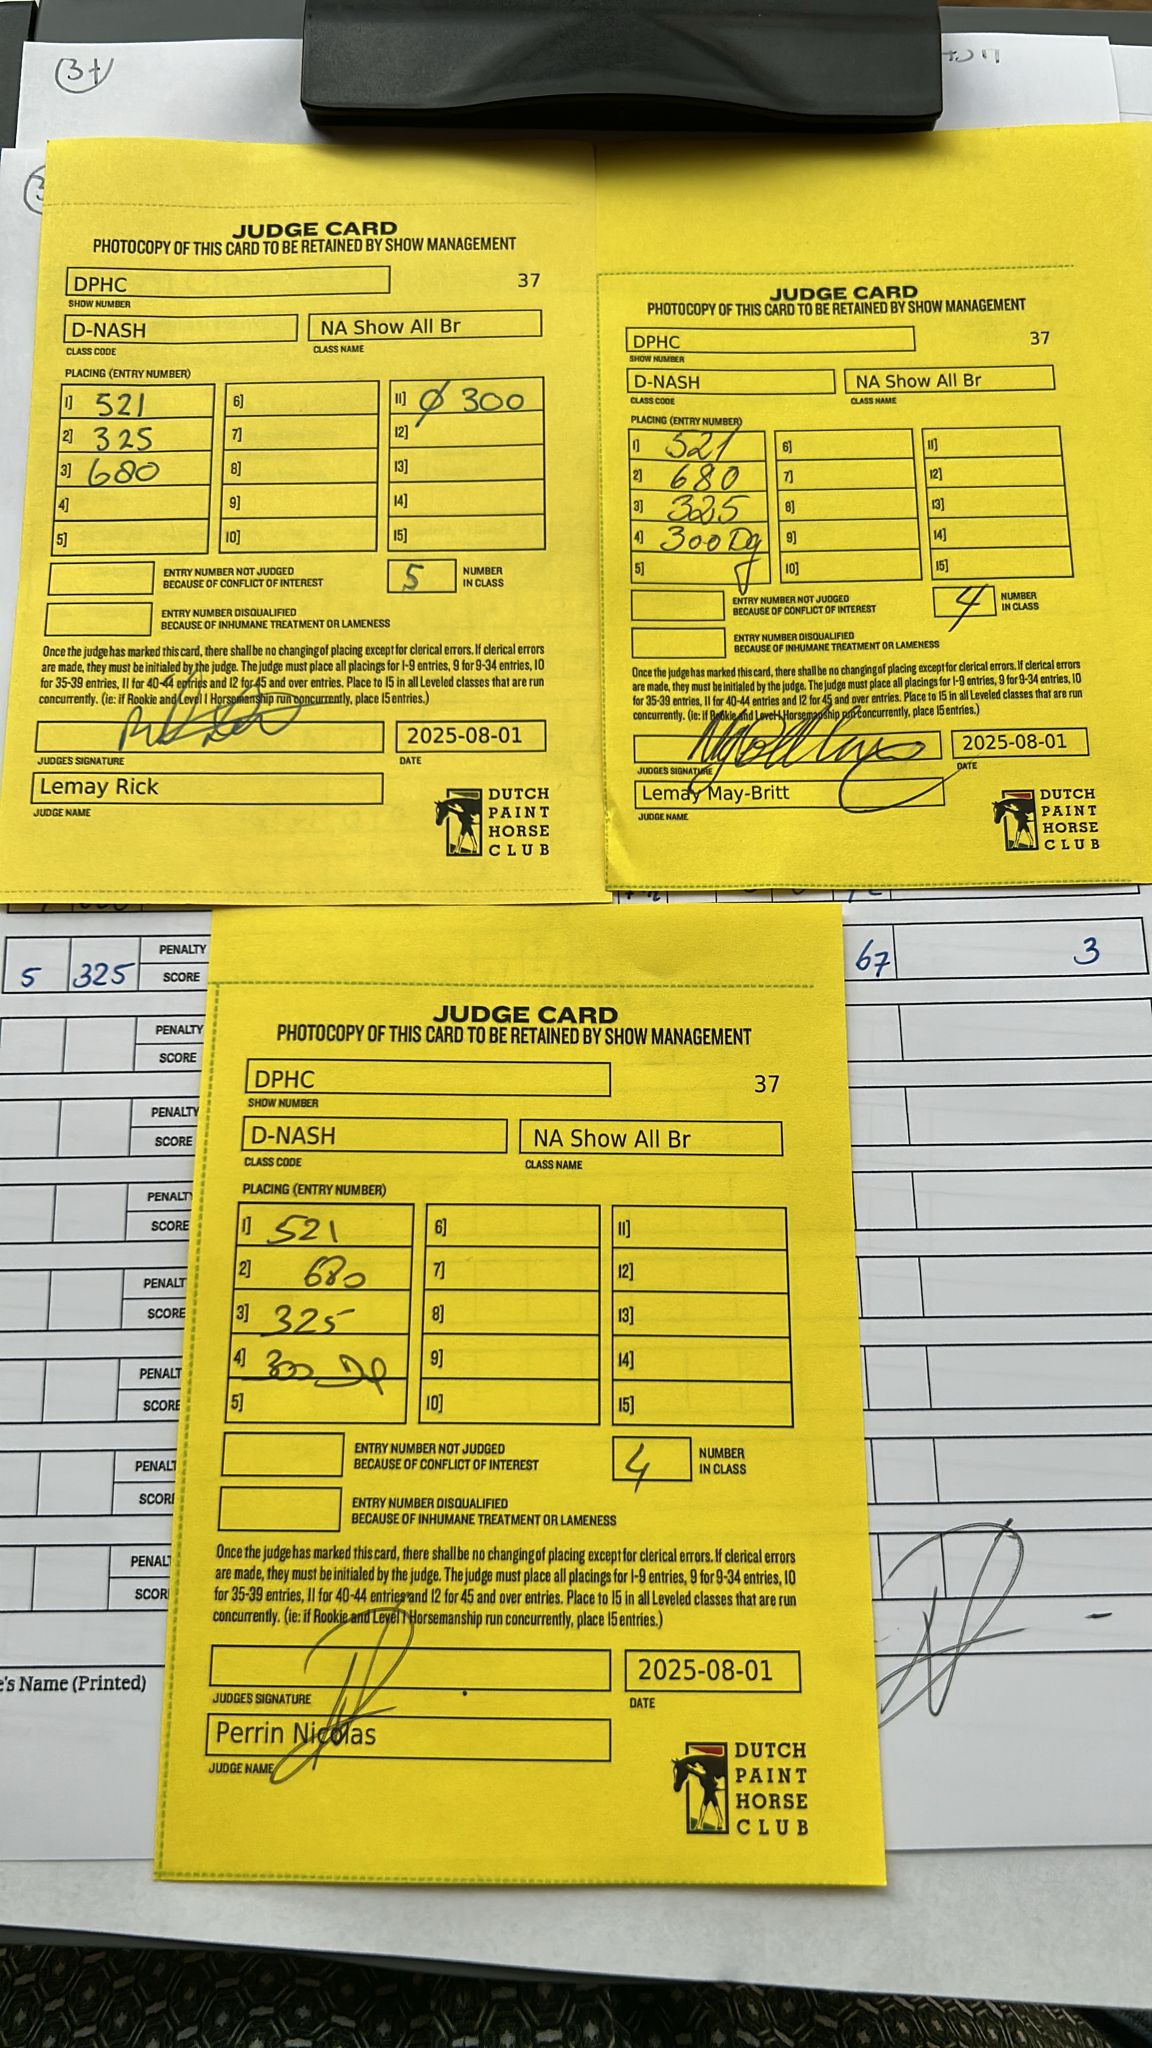 3+
JUDGE CARD
PHOTOCOPY OF THIS CARD TO BE RETAINED BY SHOW MANAGEMENT
DPHC 37
SHOW NUMBER
D-NASH NA Show All Br
CLASS CODE CLASS NAME
PLACING (ENTRY NUMBER)
1] 521 6] 11] ∅ 300
2] 325 7] 12]
3] 680 8] 13]
4] 9] 14]
5] 10] 15]
ENTRY NUMBER NOT JUDGED BECAUSE OF CONFLICT OF INTEREST 5 NUMBER IN CLASS
ENTRY NUMBER DISQUALIFIED
BECAUSE OF INHUMANE TREATMENT OR LAMENESS
Once the judge has marked this card, there shall be no changing of placing except for clerical errors. If clerical errors
are made, they must be initialed by the judge. The judge must place all placings for 1-9 entries, 9 for 9-34 entries, 10
for 35-39 entries, 11 for 40-44 entries and 12 for 45 and over entries. Place to 15 in all Leveled classes that are run
concurrently. (ie: if Rookie and Level 1 Horsemanship run concurrently, place 15 entries.)
2025-08-01
JUDGES SIGNATURE DATE
Lemay Rick
JUDGE NAME
DUTCH
PAINT
HORSE
CLUB
JUDGE CARD
PHOTOCOPY OF THIS CARD TO BE RETAINED BY SHOW MANAGEMENT
DPHC 37
SHOW NUMBER
D-NASH NA Show All Br
CLASS CODE CLASS NAME
PLACING (ENTRY NUMBER)
1] 521 6] 11]
2] 680 7] 12]
3] 325 8] 13]
4] 300 Dq 9] 14]
5] 10] 15]
ENTRY NUMBER NOT JUDGED BECAUSE OF CONFLICT OF INTEREST 4 NUMBER IN CLASS
ENTRY NUMBER DISQUALIFIED
BECAUSE OF INHUMANE TREATMENT OR LAMENESS
Once the judge has marked this card, there shall be no changing of placing except for clerical errors. If clerical errors
are made, they must be initialed by the judge. The judge must place all placings for 1-9 entries, 9 for 9-34 entries, 10
for 35-39 entries, 11 for 40-44 entries and 12 for 45 and over entries. Place to 15 in all Leveled classes that are run
concurrently. (ie: if Rookie and Level 1 Horsemanship run concurrently, place 15 entries.)
2025-08-01
JUDGES SIGNATURE DATE
Lemay May-Britt
JUDGE NAME
DUTCH
PAINT
HORSE
CLUB
5 325 PENALTY 67 3
SCORE
PENALTY
SCORE
PENALTY
SCORE
PENALTY
SCORE
PENALT
SCORE
PENALT
SCORE
PENALT
SCOR
PENAL
SCOR
e's Name (Printed)
JUDGE CARD
PHOTOCOPY OF THIS CARD TO BE RETAINED BY SHOW MANAGEMENT
DPHC 37
SHOW NUMBER
D-NASH NA Show All Br
CLASS CODE CLASS NAME
PLACING (ENTRY NUMBER)
1] 521 6] 11]
2] 680 7] 12]
3] 325 8] 13]
4] 300 DQ 9] 14]
5] 10] 15]
ENTRY NUMBER NOT JUDGED BECAUSE OF CONFLICT OF INTEREST 4 NUMBER IN CLASS
ENTRY NUMBER DISQUALIFIED
BECAUSE OF INHUMANE TREATMENT OR LAMENESS
Once the judge has marked this card, there shall be no changing of placing except for clerical errors. If clerical errors
are made, they must be initialed by the judge. The judge must place all placings for 1-9 entries, 9 for 9-34 entries, 10
for 35-39 entries, 11 for 40-44 entries and 12 for 45 and over entries. Place to 15 in all Leveled classes that are run
concurrently. (ie: if Rookie and Level 1 Horsemanship run concurrently, place 15 entries.)
2025-08-01
JUDGES SIGNATURE DATE
Perrin Nicolas
JUDGE NAME
DUTCH
PAINT
HORSE
CLUB